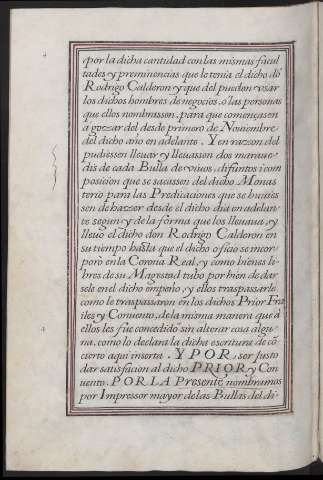 por la dicha cantidad con las mismas facul
tades y preminencias que lo tenia el dicho dõ
Rodrigo Calderon y que del pueden vsar
los dichos hombres de negocios, o las personas
que ellos nombrassen, para que començasen
a goezar del desde primero de Nouiembre
del dicho año en adelante. Y en razon del
pudiessen lleuar y lleuassen dos maraue
dis de cada Bulla de viuos, difuntos i com
posicion que se sacassen del dicho Monas
terio para las Predicaciones que se huuies
sen de hazer desde el dicho dia en adelan
te segun y de la forma que los lleuaua, y
lleuo el dicho don Rodrigo Calderon en
su tiempo hasta que el dicho oficio se incor
porò en la Corona Real, y como bienes li
bres de su Magestad tubo por bien de dar
sele en el dicho empeño, y ellos traspassarle
como le traspassaron en los dichos Prior Fra
iles y Conuento, de la misma manera que á
ellos les fue concedido sin alterar cosa algu
na, como lo declara la dicha escritura de cõ
cierto aqui inserta. Y POR, ser justo
dar satisfacion al dicho PRIOR y Con
uento. POR LA Presente nombramos
por Impressor mayor de las Bullas del di-